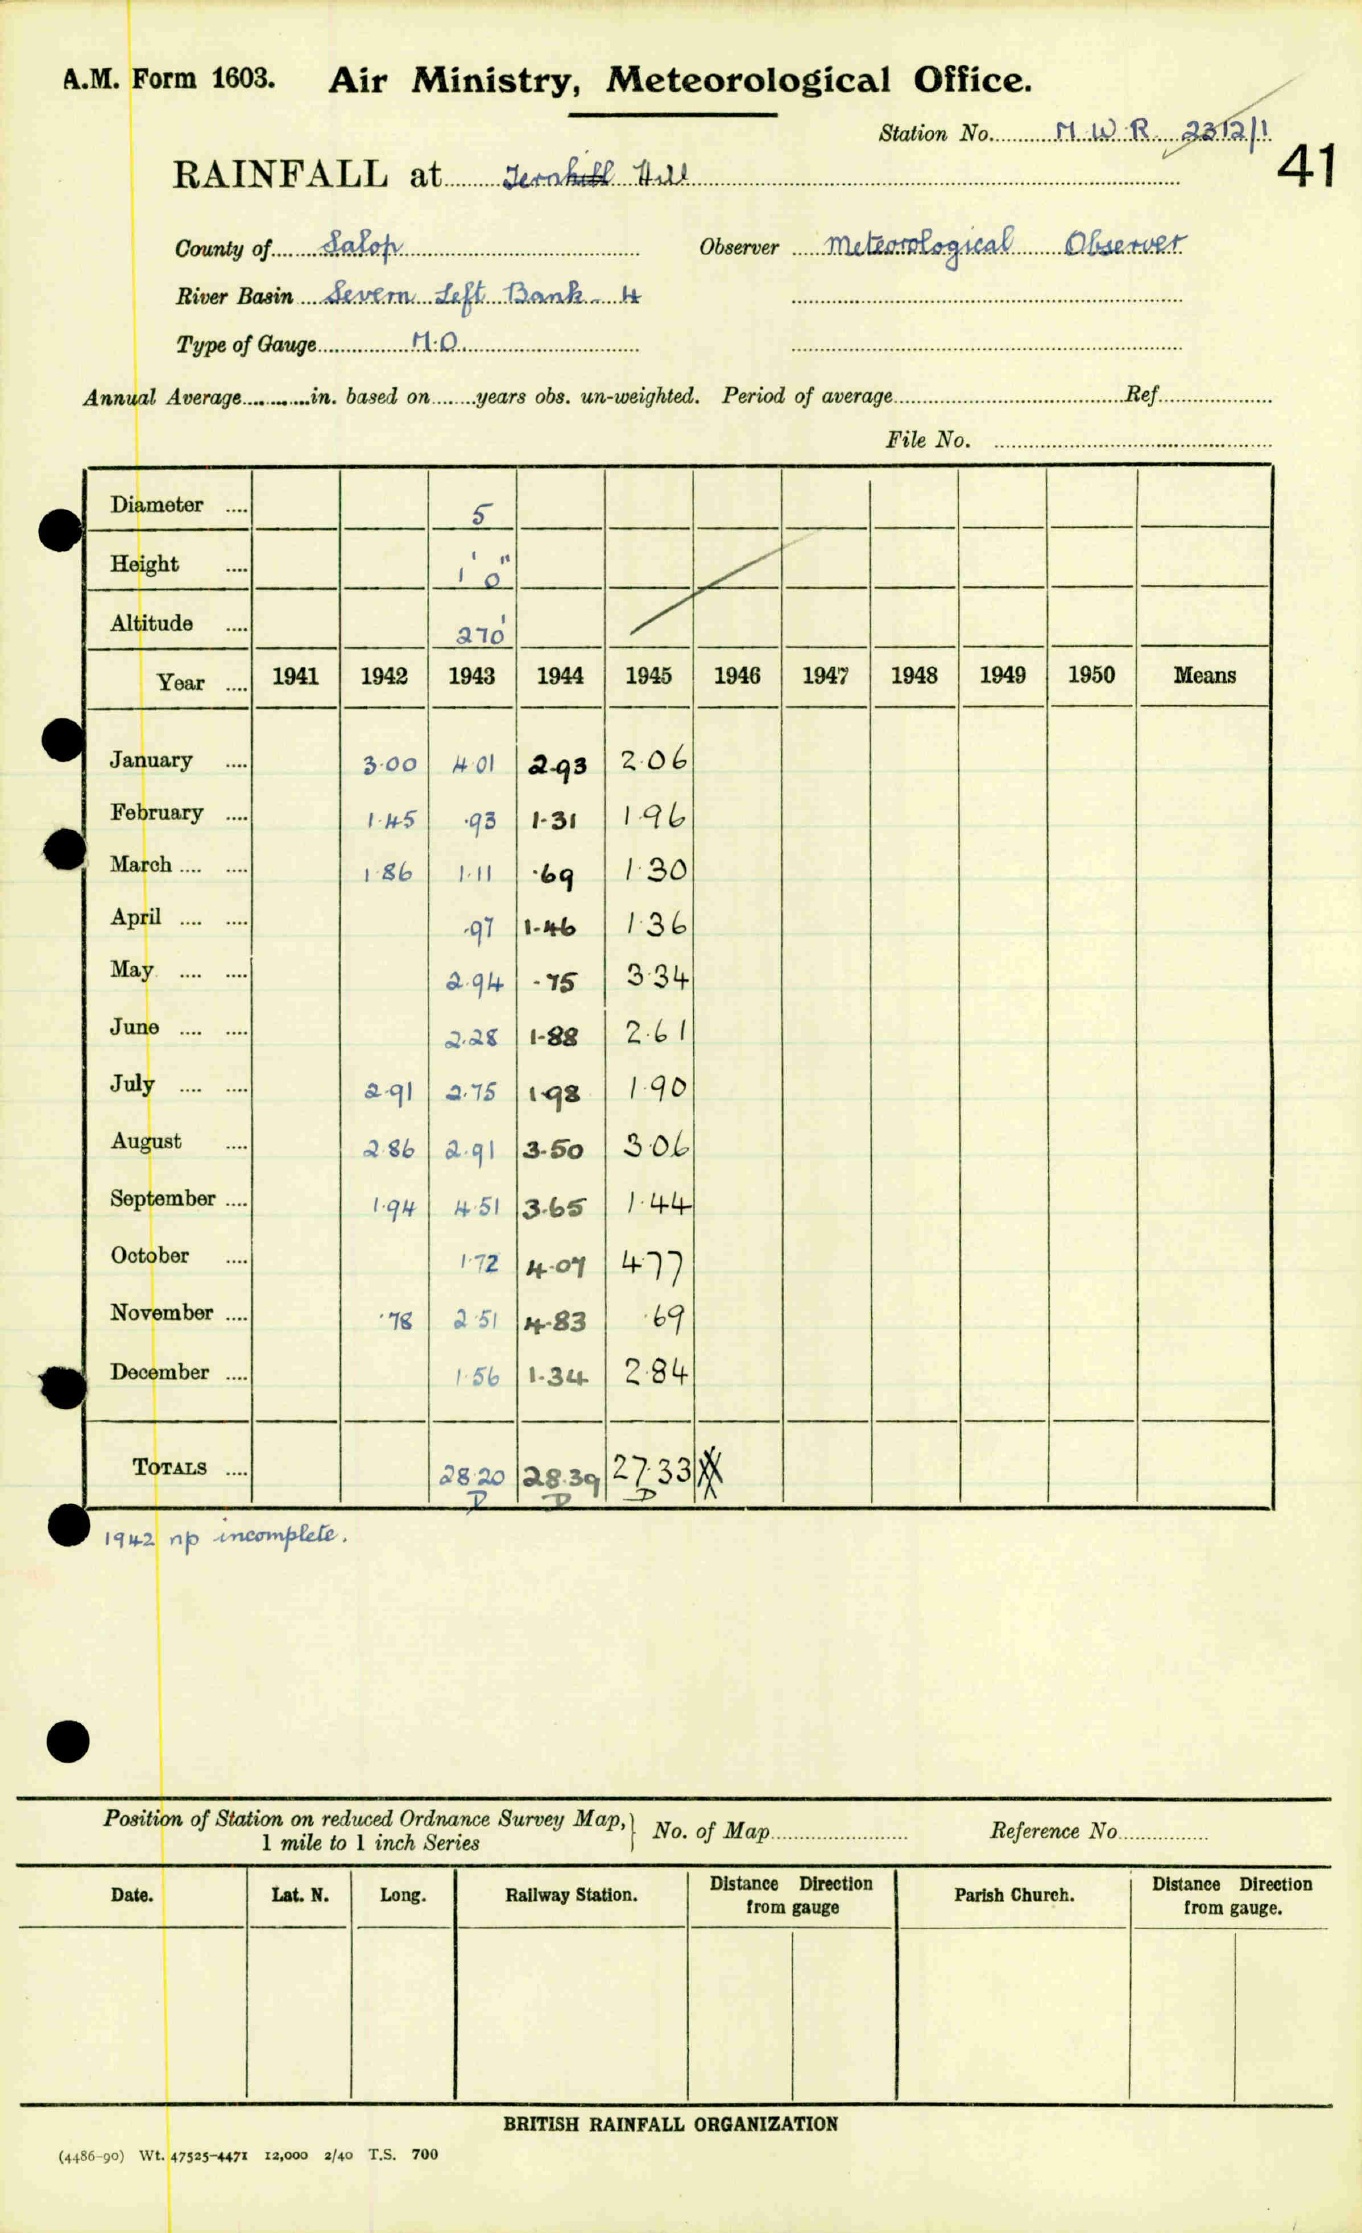 A.M. Form 1603. Air Ministry, Meteorological Office.
Station No. M W R 2312/1
41
RAINFALL at Ternhill Hill
County of Salop Observer Meteorological Observer
River Basin Severn Left Bank 4
Type of Gauge M.O.
Annual Average in. based on years obs. un-weighted. Period of average Ref.
File No.
Diameter .... 5
Height .... 1' 0"
Altitude .... 270'
Year .... 1941 1942 1943 1944 1945 1946 1947 1948 1949 1950 Means
January .... 3.00 4.01 2.93 2.06
February .... 1.45 .93 1.31 1.96
March .... .... 1.86 1.11 .69 1.30
April .... .... .97 1.46 1.36
May .... .... 2.94 .75 3.34
June .... .... 2.28 1.88 2.61
July .... .... 2.91 2.75 1.98 1.90
August .... 2.86 2.91 3.50 3.06
September .... 1.94 4.51 3.65 1.44
October .... 1.72 4.07 4.77
November .... .78 2.51 4.83 .69
December .... 1.56 1.34 2.84
TOTALS .... 28.20 28.39 27.33
D D D
1942 np incomplete.
Position of Station on reduced Ordnance Survey Map, No. of Map Reference No
1 mile to 1 inch Series
Date. Lat. N. Long. Railway Station. Distance Direction from gauge Parish Church. Distance Direction from gauge.
BRITISH RAINFALL ORGANIZATION
(4486-90) Wt. 47525-4471 12,000 2/40 T.S. 700